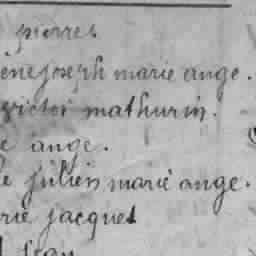 pierres
ène joseph marie ange.
victor mathurin.
e ange.
e julien marie ange.
rie jacques
jean